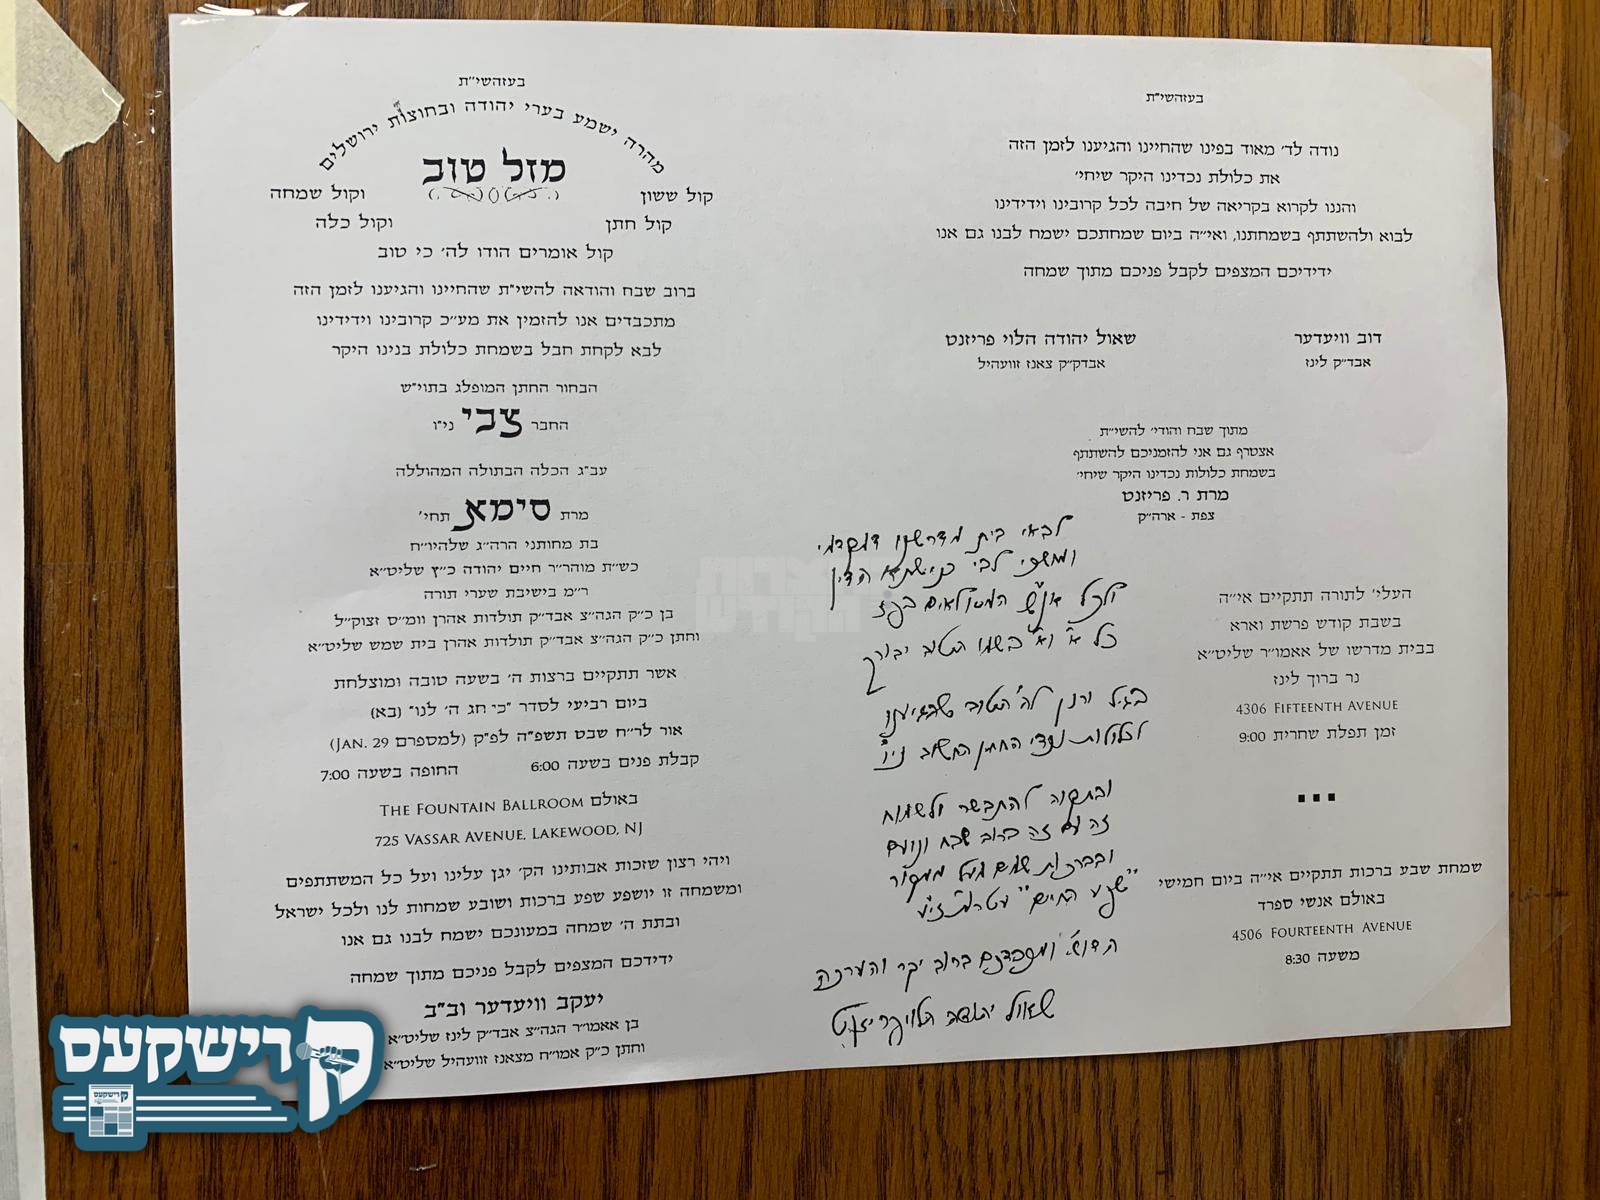 בעזהשי״ת
נודה לד׳ מאוד בפינו שהחיינו והגיענו לזמן הזה
את כלולת נכדינו היקר שיחי׳
והננו לקרוא בקריאה של חיבה לכל קרובינו וידידינו
לבוא ולהשתתף בשמחתנו, ואי״ה ביום שמחתכם ישמח לבנו גם אנו
ידידיכם המצפים לקבל פניכם מתוך שמחה
דוב וויעדער
אבד״ק לינז
שאול יהודה הלוי פריזנט
אבדק״ק צאנז זוועהיל
מתוך שבח והודי׳ להשי״ת
אצטרף גם אני להזמניכם להשתתף
בשמחת כלולות נכדינו היקר שיחי׳
מרת ר. פריזנט
צפת - ארה״ק
לבאי בית מדרשנו
ולכל אנ״ש
כל א׳ וא׳ בשמו הטוב יבורך
בגיל ורנן לה׳ הטוב שהגיענו
לכלולות נכדי החתן החשוב ני״ו
ובתקוה להתבשר ולשמוח
זה עם זה ברוב שבח ונועם
ובברכת שמים מעל
ברוב יקר והערכה
שאול יהודה הלוי פריזנט
העלי׳ לתורה תתקיים אי״ה
בשבת קודש פרשת וארא
בבית מדרשו של אאמו״ר שליט״א
נר ברוך לינז
4306 FIFTEENTH AVENUE
זמן תפלת שחרית 9:00
שמחת שבע ברכות תתקיים אי״ה ביום חמישי
באולם אנשי ספרד
4506 FOURTEENTH AVENUE
משעה 8:30
בעזהשי״ת
מהרה ישמע בערי יהודה ובחוצות ירושלים
מזל טוב
קול ששון וקול שמחה
קול חתן וקול כלה
קול אומרים הודו לה׳ כי טוב
ברוב שבח והודאה להשי״ת שהחיינו והגיענו לזמן הזה
מתכבדים אנו להזמין את מע״כ קרובינו וידידינו
לבא לקחת חבל בשמחת כלולת בנינו היקר
הבחור החתן המופלג בתוי״ש
החבר צבי ני״ו
עב״ג הכלה הבתולה המהוללה
מרת סימא תחי׳
בת מחותני הרה״ג שלהיו״ח
כש״ת מוהר״ר חיים יהודה כ״ץ שליט״א
ר״מ בישיבת שערי תורה
בן כ״ק הגה״צ אבד״ק תולדות אהרן וומ״ס זצוק״ל
וחתן כ״ק הגה״צ אבד״ק תולדות אהרן בית שמש שליט״א
אשר תתקיים ברצות ה׳ בשעה טובה ומוצלחת
ביום רביעי לסדר ״כי חג ה׳ לנו״ (בא)
אור לר״ח שבט תשפ״ה לפ״ק (למספרם JAN. 29)
קבלת פנים בשעה 6:00 החופה בשעה 7:00
באולם THE FOUNTAIN BALLROOM
725 VASSAR AVENUE, LAKEWOOD, NJ
ויהי רצון שזכות אבותינו הק׳ יגן עלינו ועל כל המשתתפים
ומשמחה זו יושפע שפע ברכות ושובע שמחות לנו ולכל ישראל
ובתת ה׳ שמחה במעונכם ישמח לבנו גם אנו
ידידכם המצפים לקבל פניכם מתוך שמחה
יעקב וויעדער וב״ב
בן אאמו״ר הגה״צ אבד״ק לינז שליט״א
וחתן כ״ק אמו״ח מצאנז זוועהיל שליט״א
קרישקעס
קרישקעס